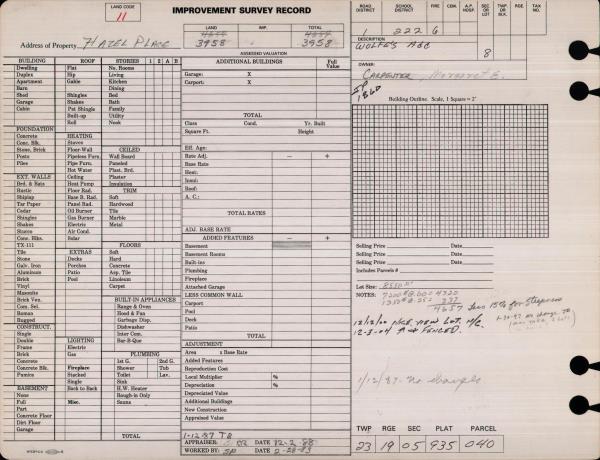 LAND CODE
11
IMPROVEMENT SURVEY RECORD
LAND IMP. TOTAL
4657 4657
3958 3958
Address of Property HAZEL PLACE
ASSESSED VALUATION
ROAD DISTRICT SCHOOL DISTRICT FIRE CEM. A.P. HOSP. SEC OR LOT TWP OR BLK. RGE TAX NO.
1 222 6
DESCRIPTION
WOLFE'S ADD 8
OWNER:
CARPENTER, Margaret E.
SP 1860
Building Outline. Scale, 1 Square = 2'
BUILDING ROOF STORIES 1 2 A B
Dwelling Flat No. Rooms
Duplex Hip Living
Apartment Gable Kitchen
Barn Dining
Shed Shingles Bed
Garage Shakes Bath
Cabin Pat Shingle Family
Built-up Utility
Roll Nook
FOUNDATION
Concrete HEATING
Conc. Blk. Stoves
Stone, Brick Floor-Wall CEILED
Posts Pipeless Furn. Wall Board
Piles Pipe Furn. Paneled
Hot Water Plast. Brd.
EXT. WALLS Ceiling Plaster
Brd. & Bats Heat Pump Insulation
Rustic Floor Rad. TRIM
Shiplap Base B. Rad. Soft
Tar Paper Panel Rad. Hardwood
Cedar Oil Burner Tile
Shingles Gas Burner Marble
Shakes Electric Metal
Stucco Air Cond.
Conc. Blks. Solar
TX-111 FLOORS
Tile EXTRAS Soft
Stone Decks Hard
Galv. Iron Porches Concrete
Aluminum Patio Asp. Tile
Brick Pool Linoleum
Vinyl Carpet
Masonite
Brick Ven. BUILT-IN APPLIANCES
Com. Sdi. Range & Oven
Roman Hood & Fan
Rugged Garbage Disp.
CONSTRUCT. Dishwasher
Single Inter Com.
Double LIGHTING Bar-B-Que
Frame Electric
Brick Gas PLUMBING
Concrete 1st G. 2nd G.
Concrete Blk. Fireplace Shower Tub
Pumice Stacked Toilet Lav.
Single Sink
BASEMENT Back to Back H.W. Heater
None Rough-in Only
Full Misc. Sauna
Part
Concrete Floor
Dirt Floor
Garage
TOTAL
ADDITIONAL BUILDINGS Full Value
Garage: X
Carport: X
TOTAL
Class Cond. Yr. Built
Square Ft. Height
Eff. Age:
Rate Adj. − +
Base Rate
Heat:
Inst:
Roof:
A. C.:
TOTAL RATES
ADJ. BASE RATE
ADDED FEATURES − +
Basement
Basement Rooms
Built-ins
Plumbing
Fireplace
Attached Garage
LESS COMMON WALL
Carport
Pool
Deck
Patio
TOTAL
ADJUSTMENT
Area x Base Rate
Added Features
Reproduction Cost
Local Multiplier %
Depreciation %
Depreciated Value
Additional Buildings
New Construction
Appraised Value
1-12-87 TB
APPRAISER DATE 12-2-88
WORKED BY SP DATE 2-28-83
Selling Price Date
Selling Price Date
Selling Price Date
Includes Parcels #
Lot Size: 8550 #
NOTES: 7200 @ .60 = 4320
1350 @ .25 = 337
4657 Less 15% for Steepness
12-3-04 FENCED.
1/12/87 - No changes
TWP RGE SEC PLAT PARCEL
23 19 05 935 040